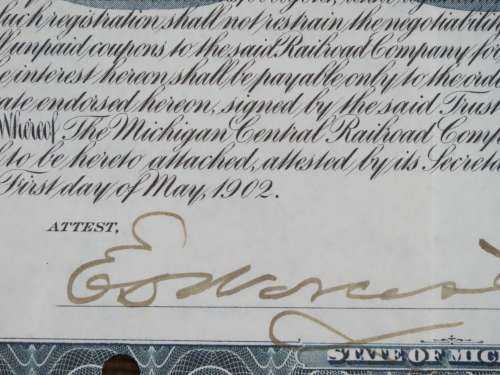 such registration shall not restrain the negotiabili
unpaid coupons to the said Railroad Company fo
e interest hereon shall be payable only to the ord
ate endorsed hereon, signed by the said Trust
Whereof The Michigan Central Railroad Comp
to be hereto attached, attested by its Secreta
First day of May, 1902.
ATTEST,
STATE OF MIC